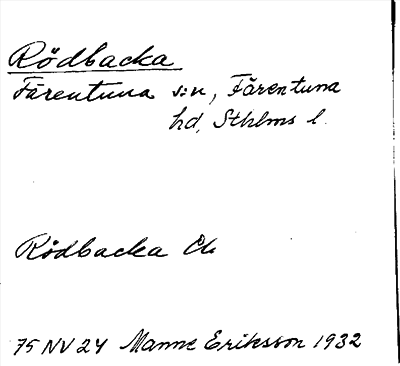 Rödbacka
Färentuna s:n, Färentuna
hd, Sthlms l.
Rödbacka
75 NV 24 Manne Eriksson 1932